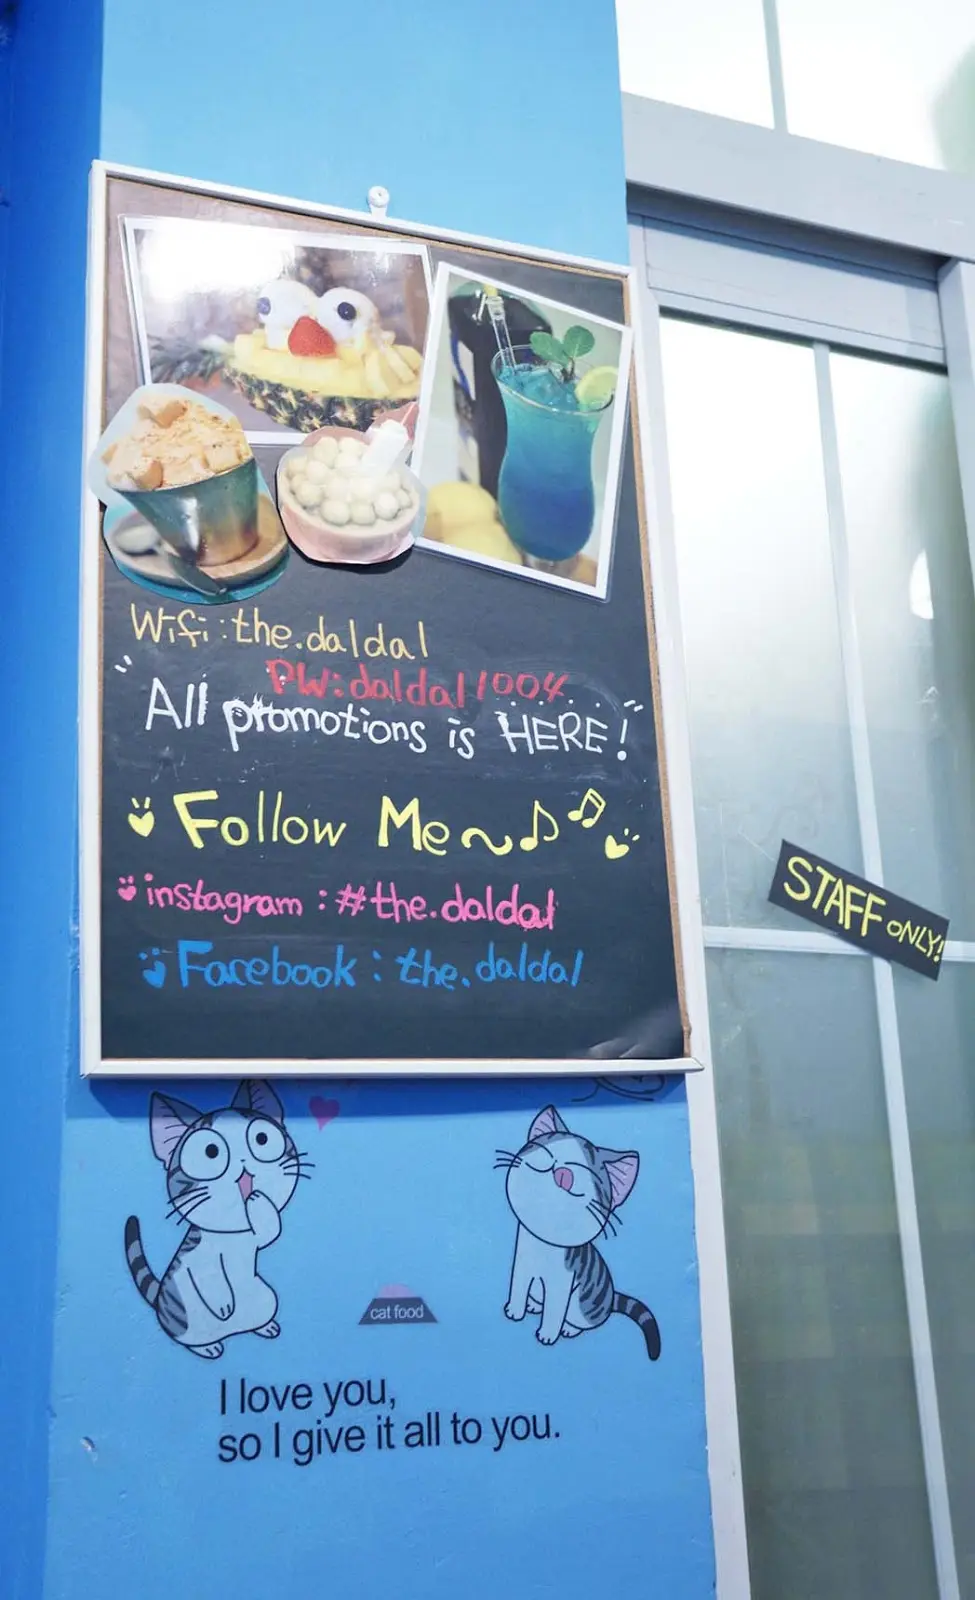 Wifi : the.daldal
PW:daldal1004
"All promotions is HERE!"
Follow Me~♪♫
instagram : #the.daldal
Facebook : the.daldal
STAFF ONLY!
cat food
I love you,
so I give it all to you.